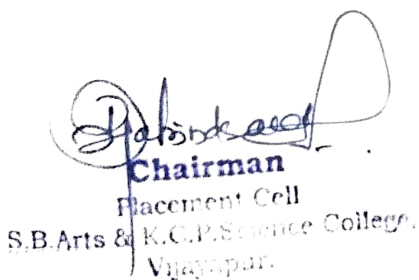 Chairman
Placement Cell
S.B.Arts & K.C.P.Science College,
Vijayapur.